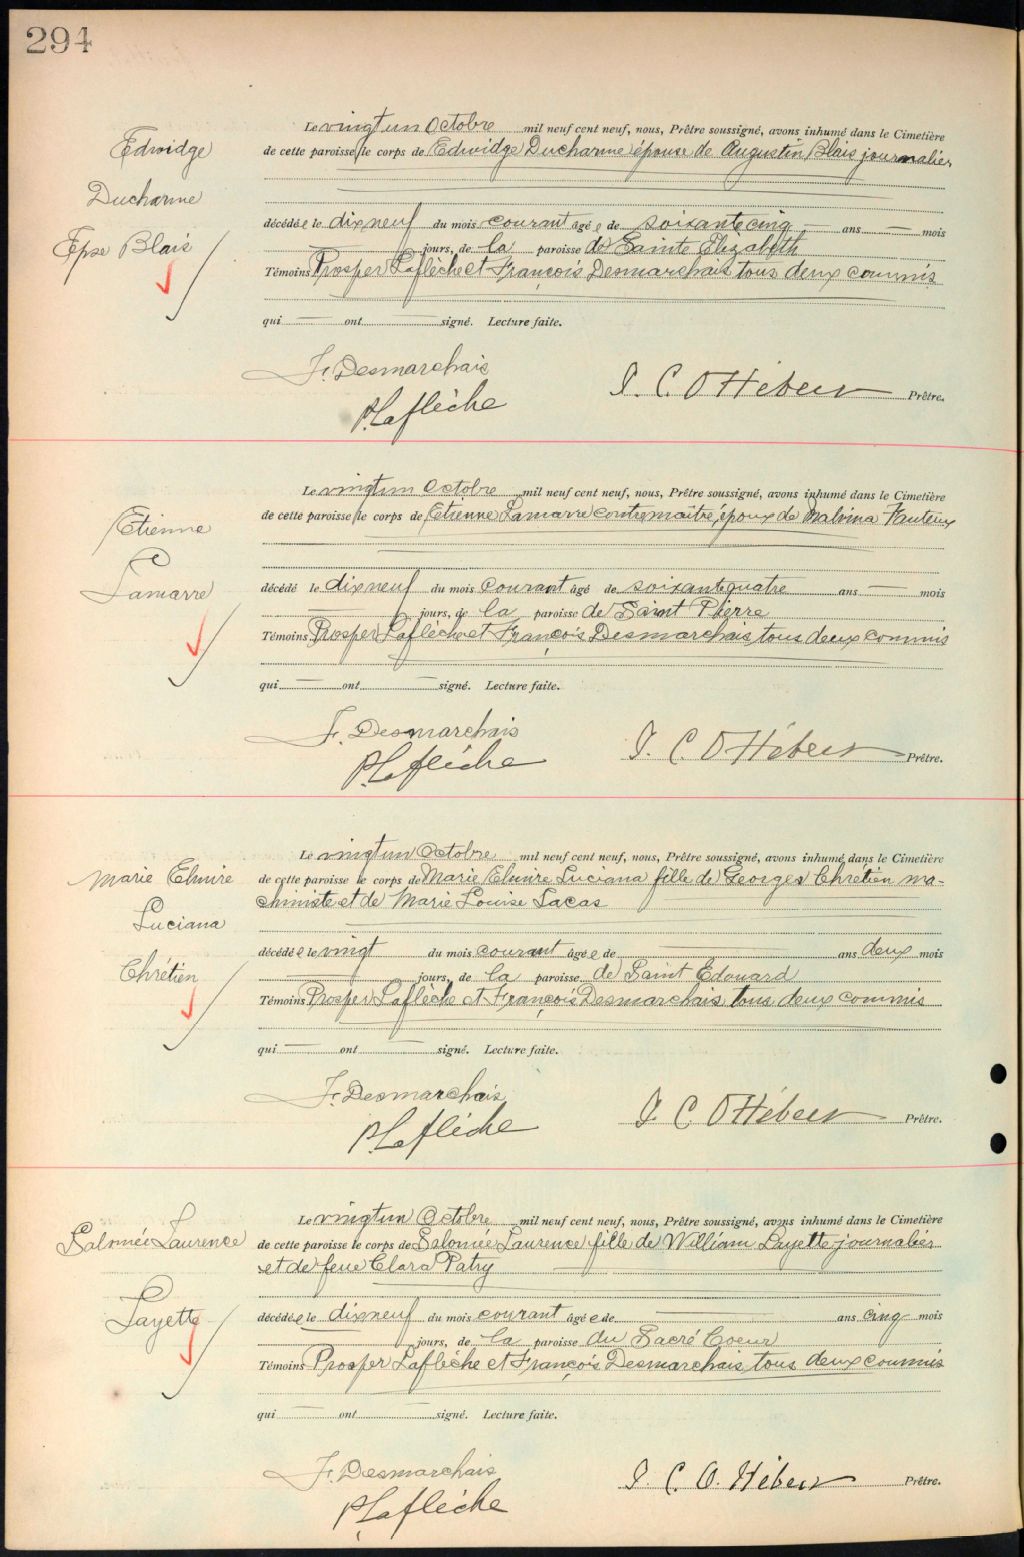 294
Edwidge
Ducharme
Epse Blais
Le vingtun Octobre mil neuf cent neuf, nous, Prêtre soussigné, avons inhumé dans le Cimetière
de cette paroisse le corps de Edwidge Ducharme épouse de Augustin Blais journalier
décédée le dixneuf du mois courant âgée de soixantecinq ans mois
jours, de la paroisse de Sainte Elizabeth
Témoins Prosper Laflèche et François Desmarchais tous deux commis
qui ont signé. Lecture faite.
F. Desmarchais
P. Laflèche
J. C. O Hébert Prêtre.
Etienne
Lamarre
Le vingtun Octobre mil neuf cent neuf, nous, Prêtre soussigné, avons inhumé dans le Cimetière
de cette paroisse le corps de Etienne Lamarre contremaître, époux de Malvina Fauteux
décédé le dixneuf du mois courant âgé de soixantequatre ans mois
jours, de la paroisse de Saint Pierre
Témoins Prosper Laflèche et François Desmarchais tous deux commis
qui ont signé. Lecture faite.
F. Desmarchais
P. Laflèche
J. C. O Hébert Prêtre.
Marie Elmire
Luciana
Chrétien
Le vingtun Octobre mil neuf cent neuf, nous, Prêtre soussigné, avons inhumé dans le Cimetière
de cette paroisse le corps de Marie Elmire Luciana fille de Georges Chrétien ma-
chiniste et de Marie Louise Lacas
décédée le vingt du mois courant âgée de ans deux mois
jours, de la paroisse de Saint Edouard
Témoins Prosper Laflèche et François Desmarchais tous deux commis
qui ont signé. Lecture faite.
F. Desmarchais
P. Laflèche
J. C. O Hébert Prêtre.
Salomée Laurence
Layette
Le vingtun Octobre mil neuf cent neuf, nous, Prêtre soussigné, avons inhumé dans le Cimetière
de cette paroisse le corps de Salomée Laurence fille de William Layette journalier
et de feue Clara Patry
décédée le dixneuf du mois courant âgée de ans cinq mois
jours, de la paroisse du Sacré Coeur
Témoins Prosper Laflèche et François Desmarchais tous deux commis
qui ont signé. Lecture faite.
F. Desmarchais
P. Laflèche
J. C. O. Hébert Prêtre.